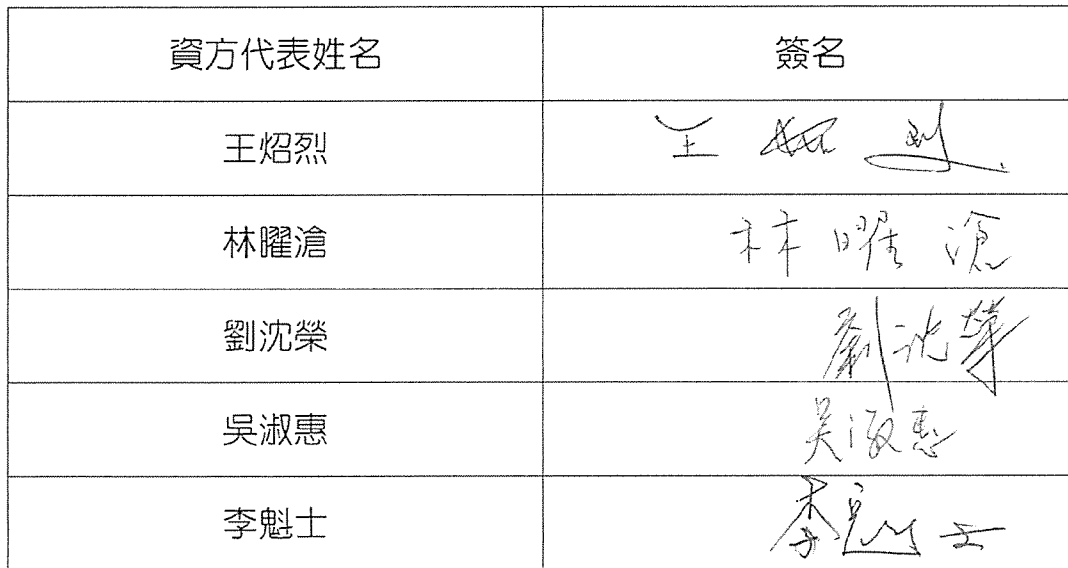 資方代表姓名 簽名
王炤烈 王炤烈
林曜滄 林曜滄
劉沈榮 劉沈榮
吳淑惠 吳淑惠
李魁士 李魁士